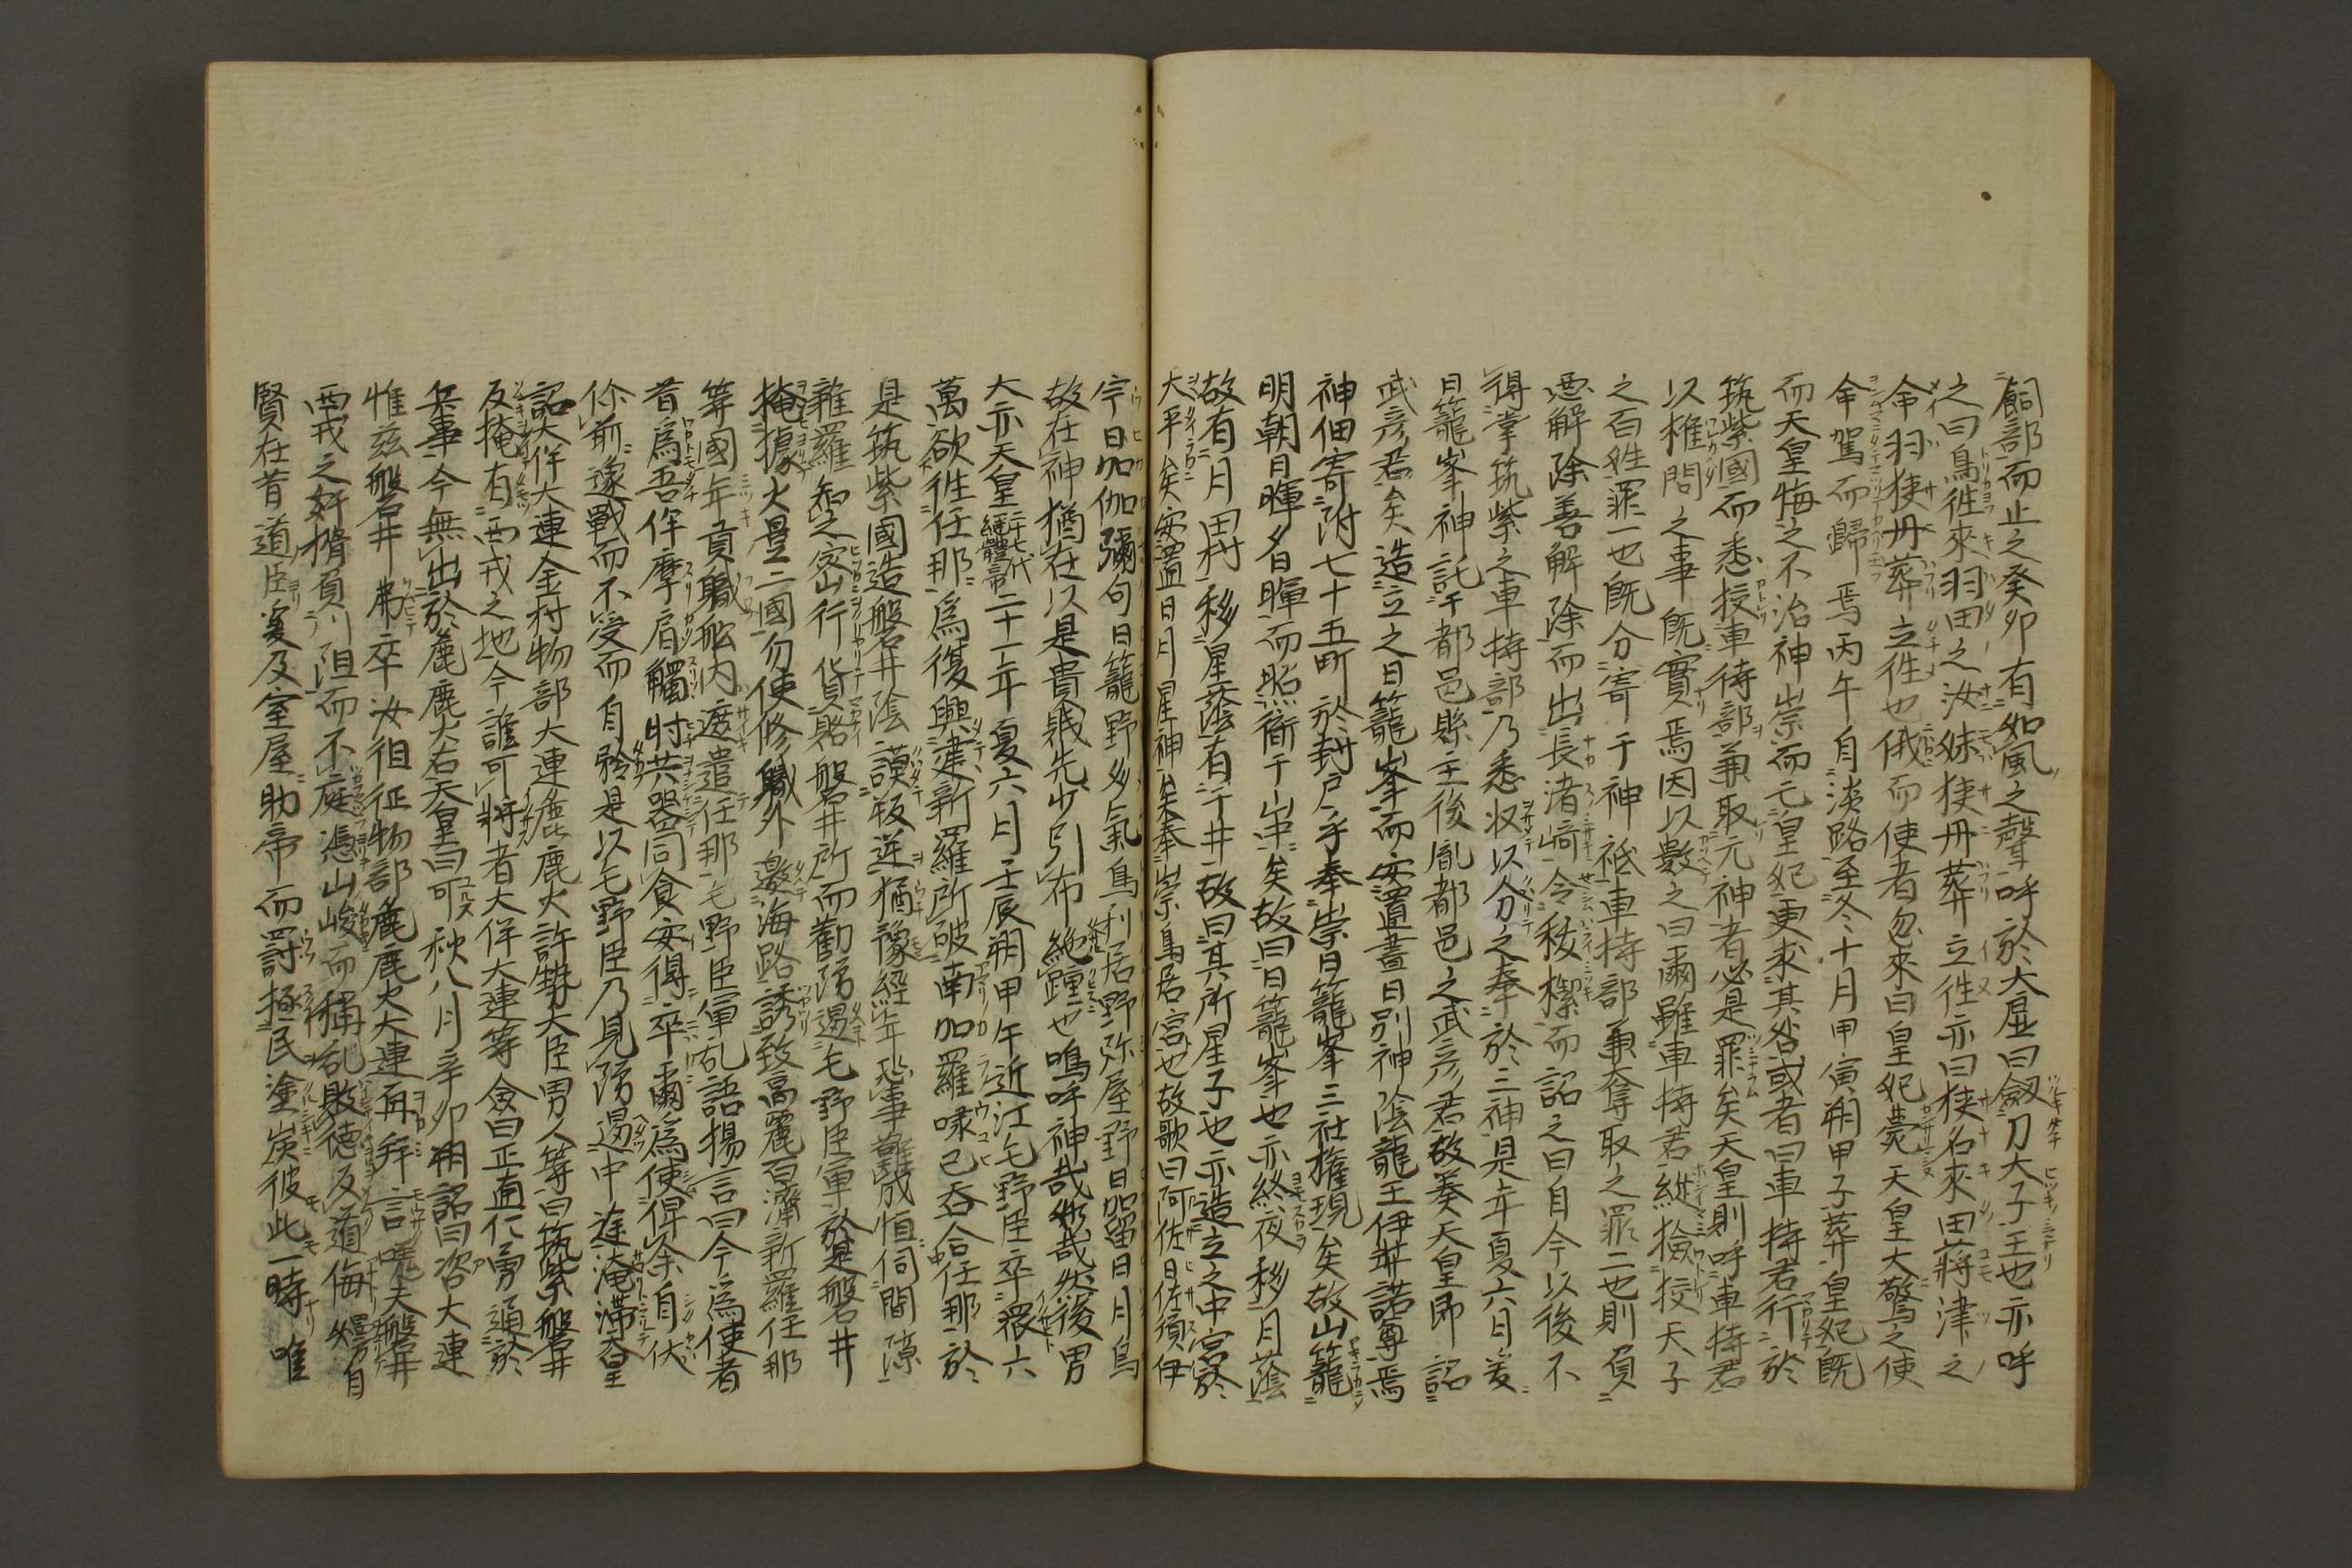 飼部而止之癸卯有如風之聲呼於大虚曰劔刀大子王也亦呼
之曰鳥徃來羽田之汝妹狹丹葬立徃亦曰狹名來田蔣津之
命羽狹丹葬立徃也俄而使者忽來曰皇妃薨天皇大驚之使
命駕而歸焉丙午自淡路至冬十月甲寅朔甲子葬皇妃既
而天皇悔之不治神崇而亡皇妃更求其咎或者曰車持君行於
筑紫國而悉授車待部兼取元神者必是罪矣天皇則呼車持君
以推問之事既實焉因以數之曰爾雖車持君縱撿挍天子
之百姓罪一也既分寄于神祗車持部兼奪取之罪二也則負
悪解除善解除而出長渚﨑令秡禊而詔之曰自今以後不
得掌筑紫之車持部乃悉収以分之奉於三神是年夏六日爰
日籠峯神託于都邑縣主後胤都邑之武彦君故奏天皇即詔
武彦君矣造立之日籠峯而安置晝日別神陰龍王伊弉諾尊焉
神佃寄附七十五町於封戸乎奉崇日籠峯三社権現矣故山籠
明朝日暉夕日暉而照衞于山中矣故曰日籠峯也亦終夜移月蔭
故有月田村移星蔭有于井故曰其所星子也亦造立之中宮於
大平矣安置日月星神矣奉崇鳥居宮也故歌曰阿佐日佐須伊
宇日加伽彌句日籠野夕氣鳥利居野弥屋野日加留日月鳥
故在神猶在以是貴賎先少引布絶踵也鳴呼神哉弥哉然後男
大亦天皇二十七代繼體帝二十一年夏六月壬辰朔甲午近江毛野臣卒衆六
萬欲徃任那為復興建新羅所破南加羅喙己呑合任那於
是筑紫國造磐井陰謨叛逆猶豫經年恐事難成恒伺間隙
新羅知之密行貨賂磐井所而勸防遏毛野臣軍於是磐井
掩據火豊二國勿使修職外邀海路誘致高麗百濟新羅任那
等國年貢職舩内遮遣任那毛野臣軍乱語揚言曰今為使者
昔為吾伴摩肩觸肘共器同食安得卒爾為使俾余自伏
你前遂戰而不受而自矜是以毛野臣乃見防遏中途淹滞天皇
詔大伴大連金村物部大連麁鹿火許勢大臣男人等曰筑紫磐井
反掩有西戎之地今誰可將者大伴大連等僉曰正直仁勇通於
兵事今無出於麁鹿火右天皇曰可秋八月辛卯朔詔曰咨大連
惟茲磐井弗率汝徂征物部麁鹿火大連再拜言嗟夫磐井
西戎之奸猾負川阻而不庭憑山峻而稱乱敗徳反道侮嫚自
賢在昔道臣爰及室屋助帝而罸拯民塗炭彼此一時唯